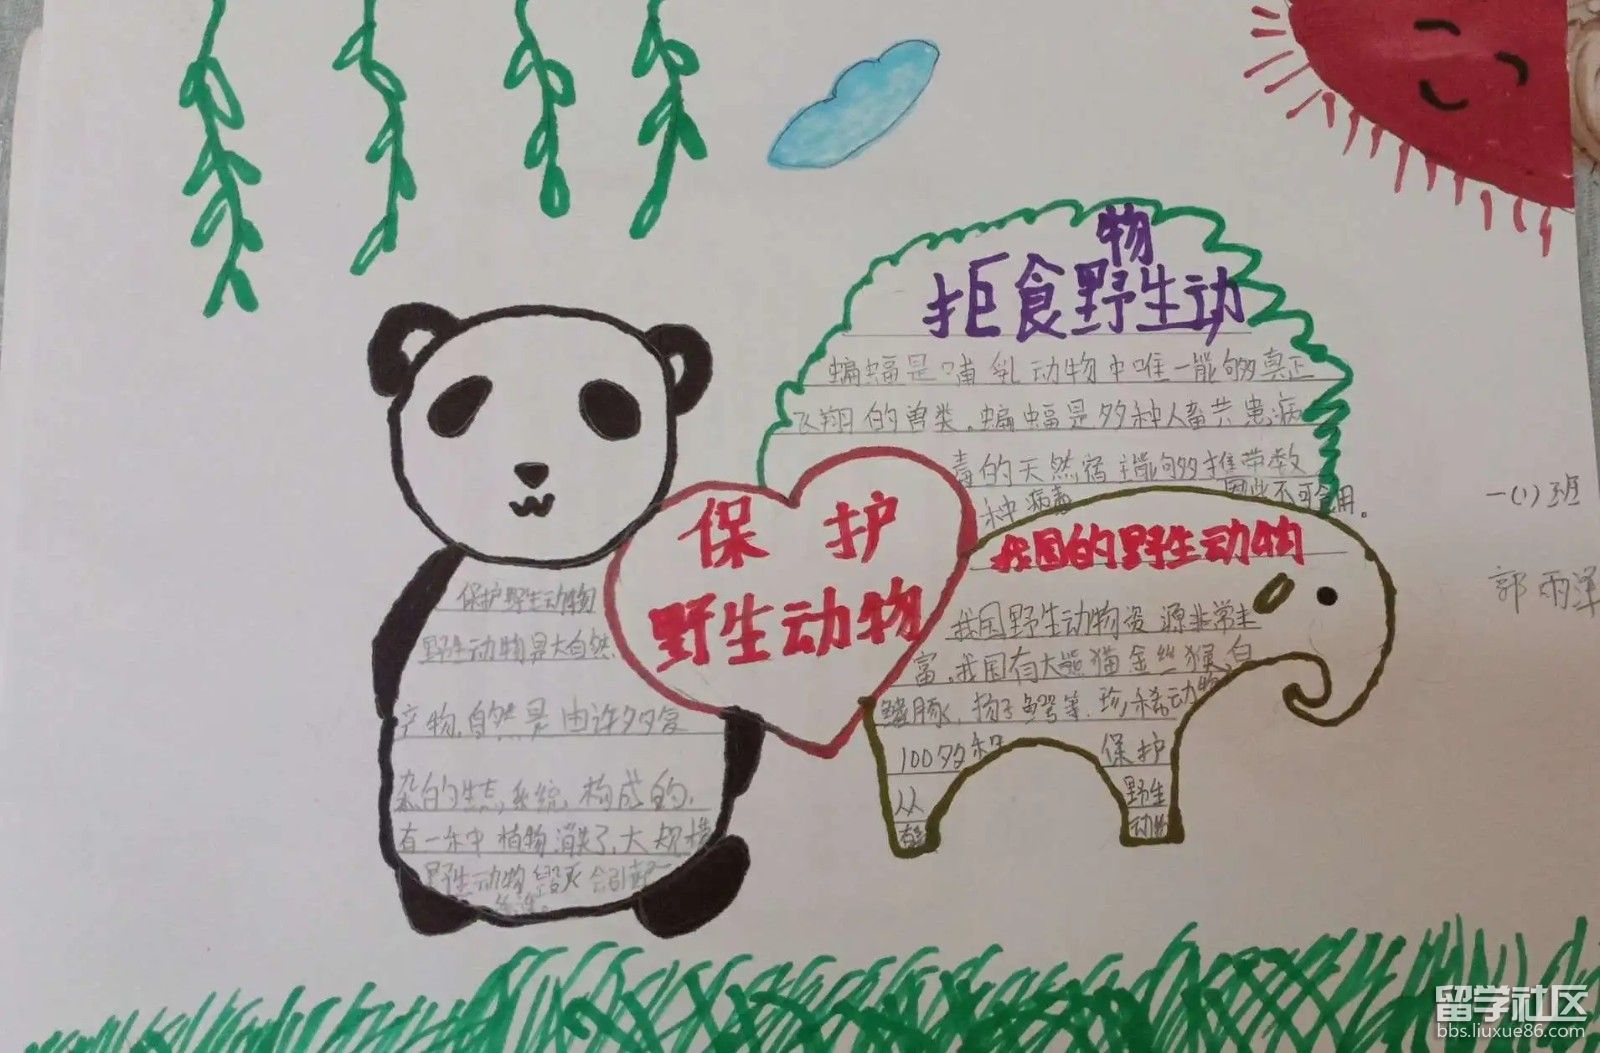 拒食野生动物
蝙蝠是哺乳动物中唯一能够真正
飞翔的兽类。蝙蝠是多种人畜共患病
毒的天然宿主能够携带数
种病毒 因此不可食用。
保护
野生动物
我国的野生动物
我国野生动物资源非常丰
富,我国有大熊猫金丝猴、白
鳍豚、扬子鳄等.珍,稀动物
100多种
从
保护
野生
动物
保护野生动物
野生动物是大自然
产物,自然是由许多复
杂的生态,系统,构成的.
有一种植物消失了,大规模
野生动物毁灭会引起
一(1)班
郭雨泽
留学社区
bbs.liuxue86.com